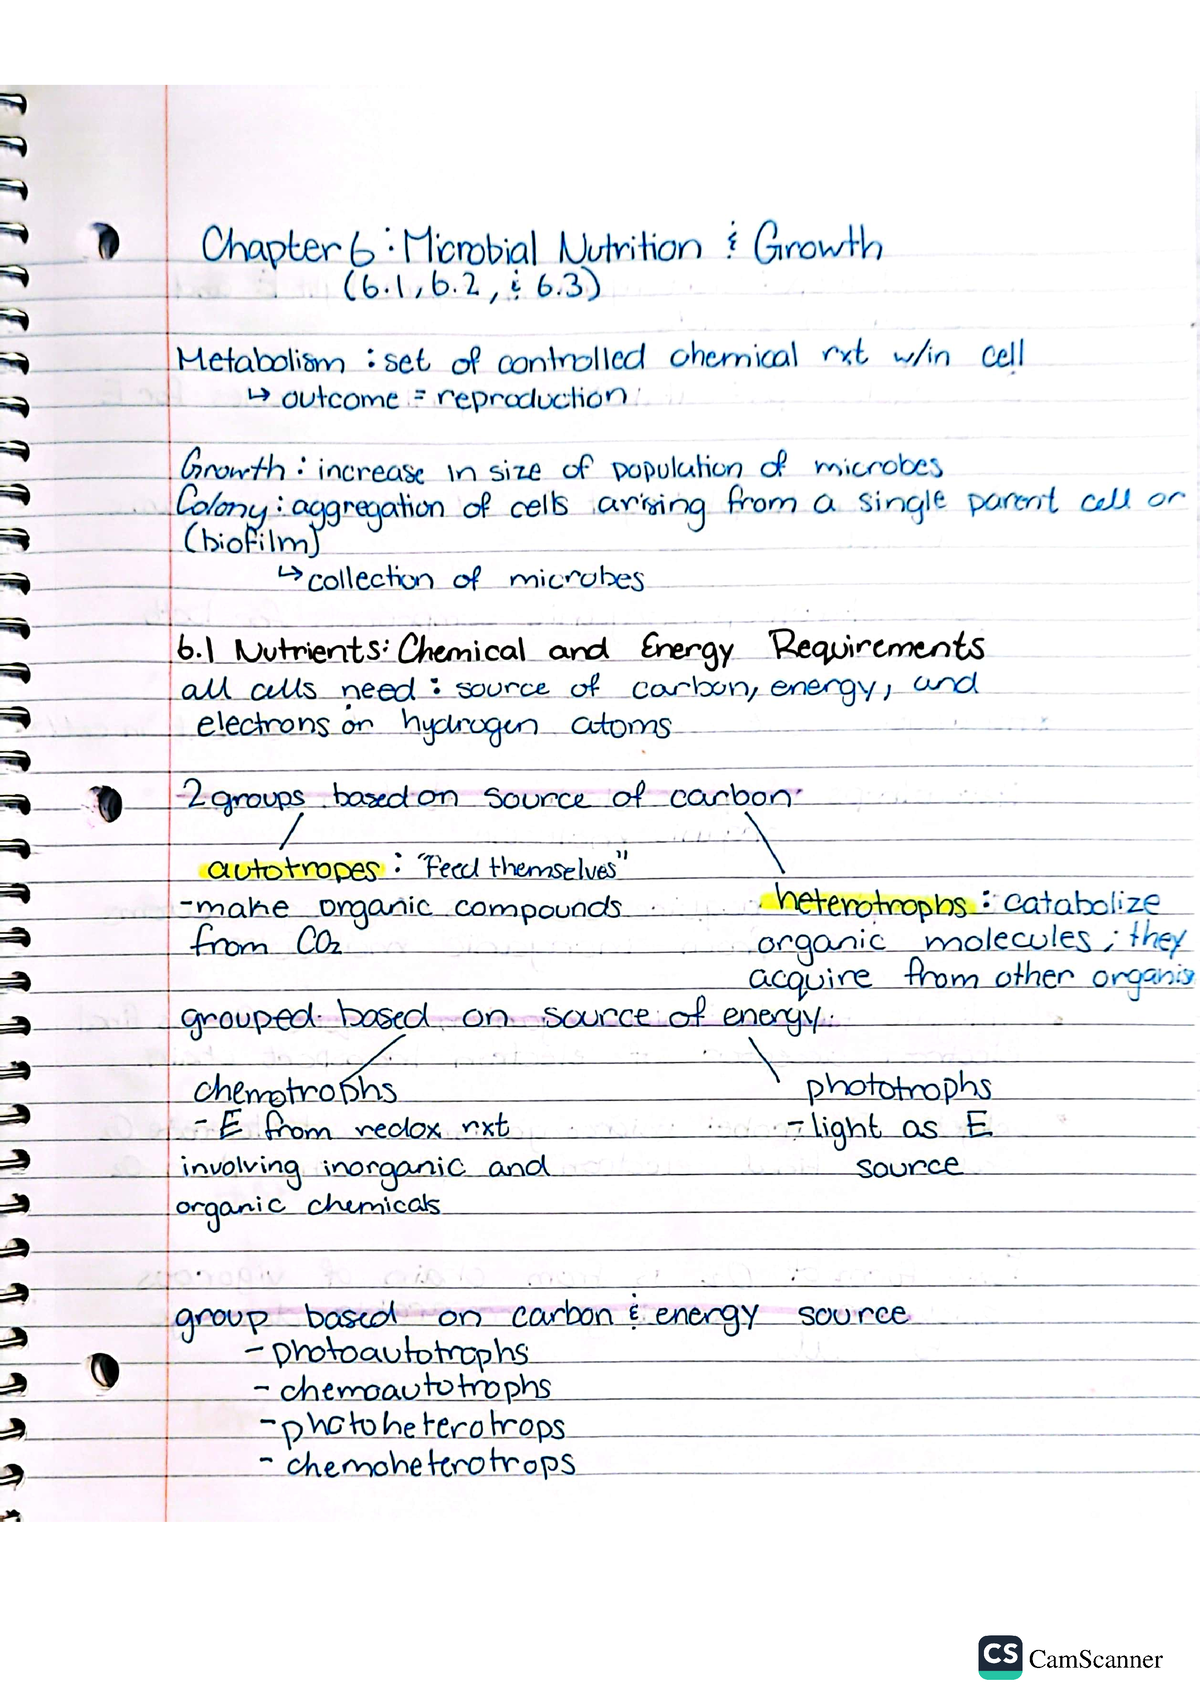 Chapter 6: Microbial Nutrition & Growth
(6.1, 6.2, & 6.3)
Metabolism: set of controlled chemical rxt w/in cell
↳ outcome = reproduction
Growth: increase in size of population of microbes
Colony: aggregation of cells arising from a single parent cell or
(biofilm)
↳ collection of microbes
6.1 Nutrients: Chemical and Energy Requirements
all cells need: source of carbon, energy, and
electrons or hydrogen atoms
2 groups based on source of carbon
autotropes: "Feed themselves"
-make organic compounds
from CO2
heterotrophs: catabolize
organic molecules; they
acquire from other organis
grouped based on source of energy
chemotrophs
- E from redox rxt
involving inorganic and
organic chemicals
phototrophs
- light as E
source
group based on carbon & energy source
- photoautotrophs
- chemoautotrophs
- photoheterotrops
- chemoheterotrops
CS CamScanner